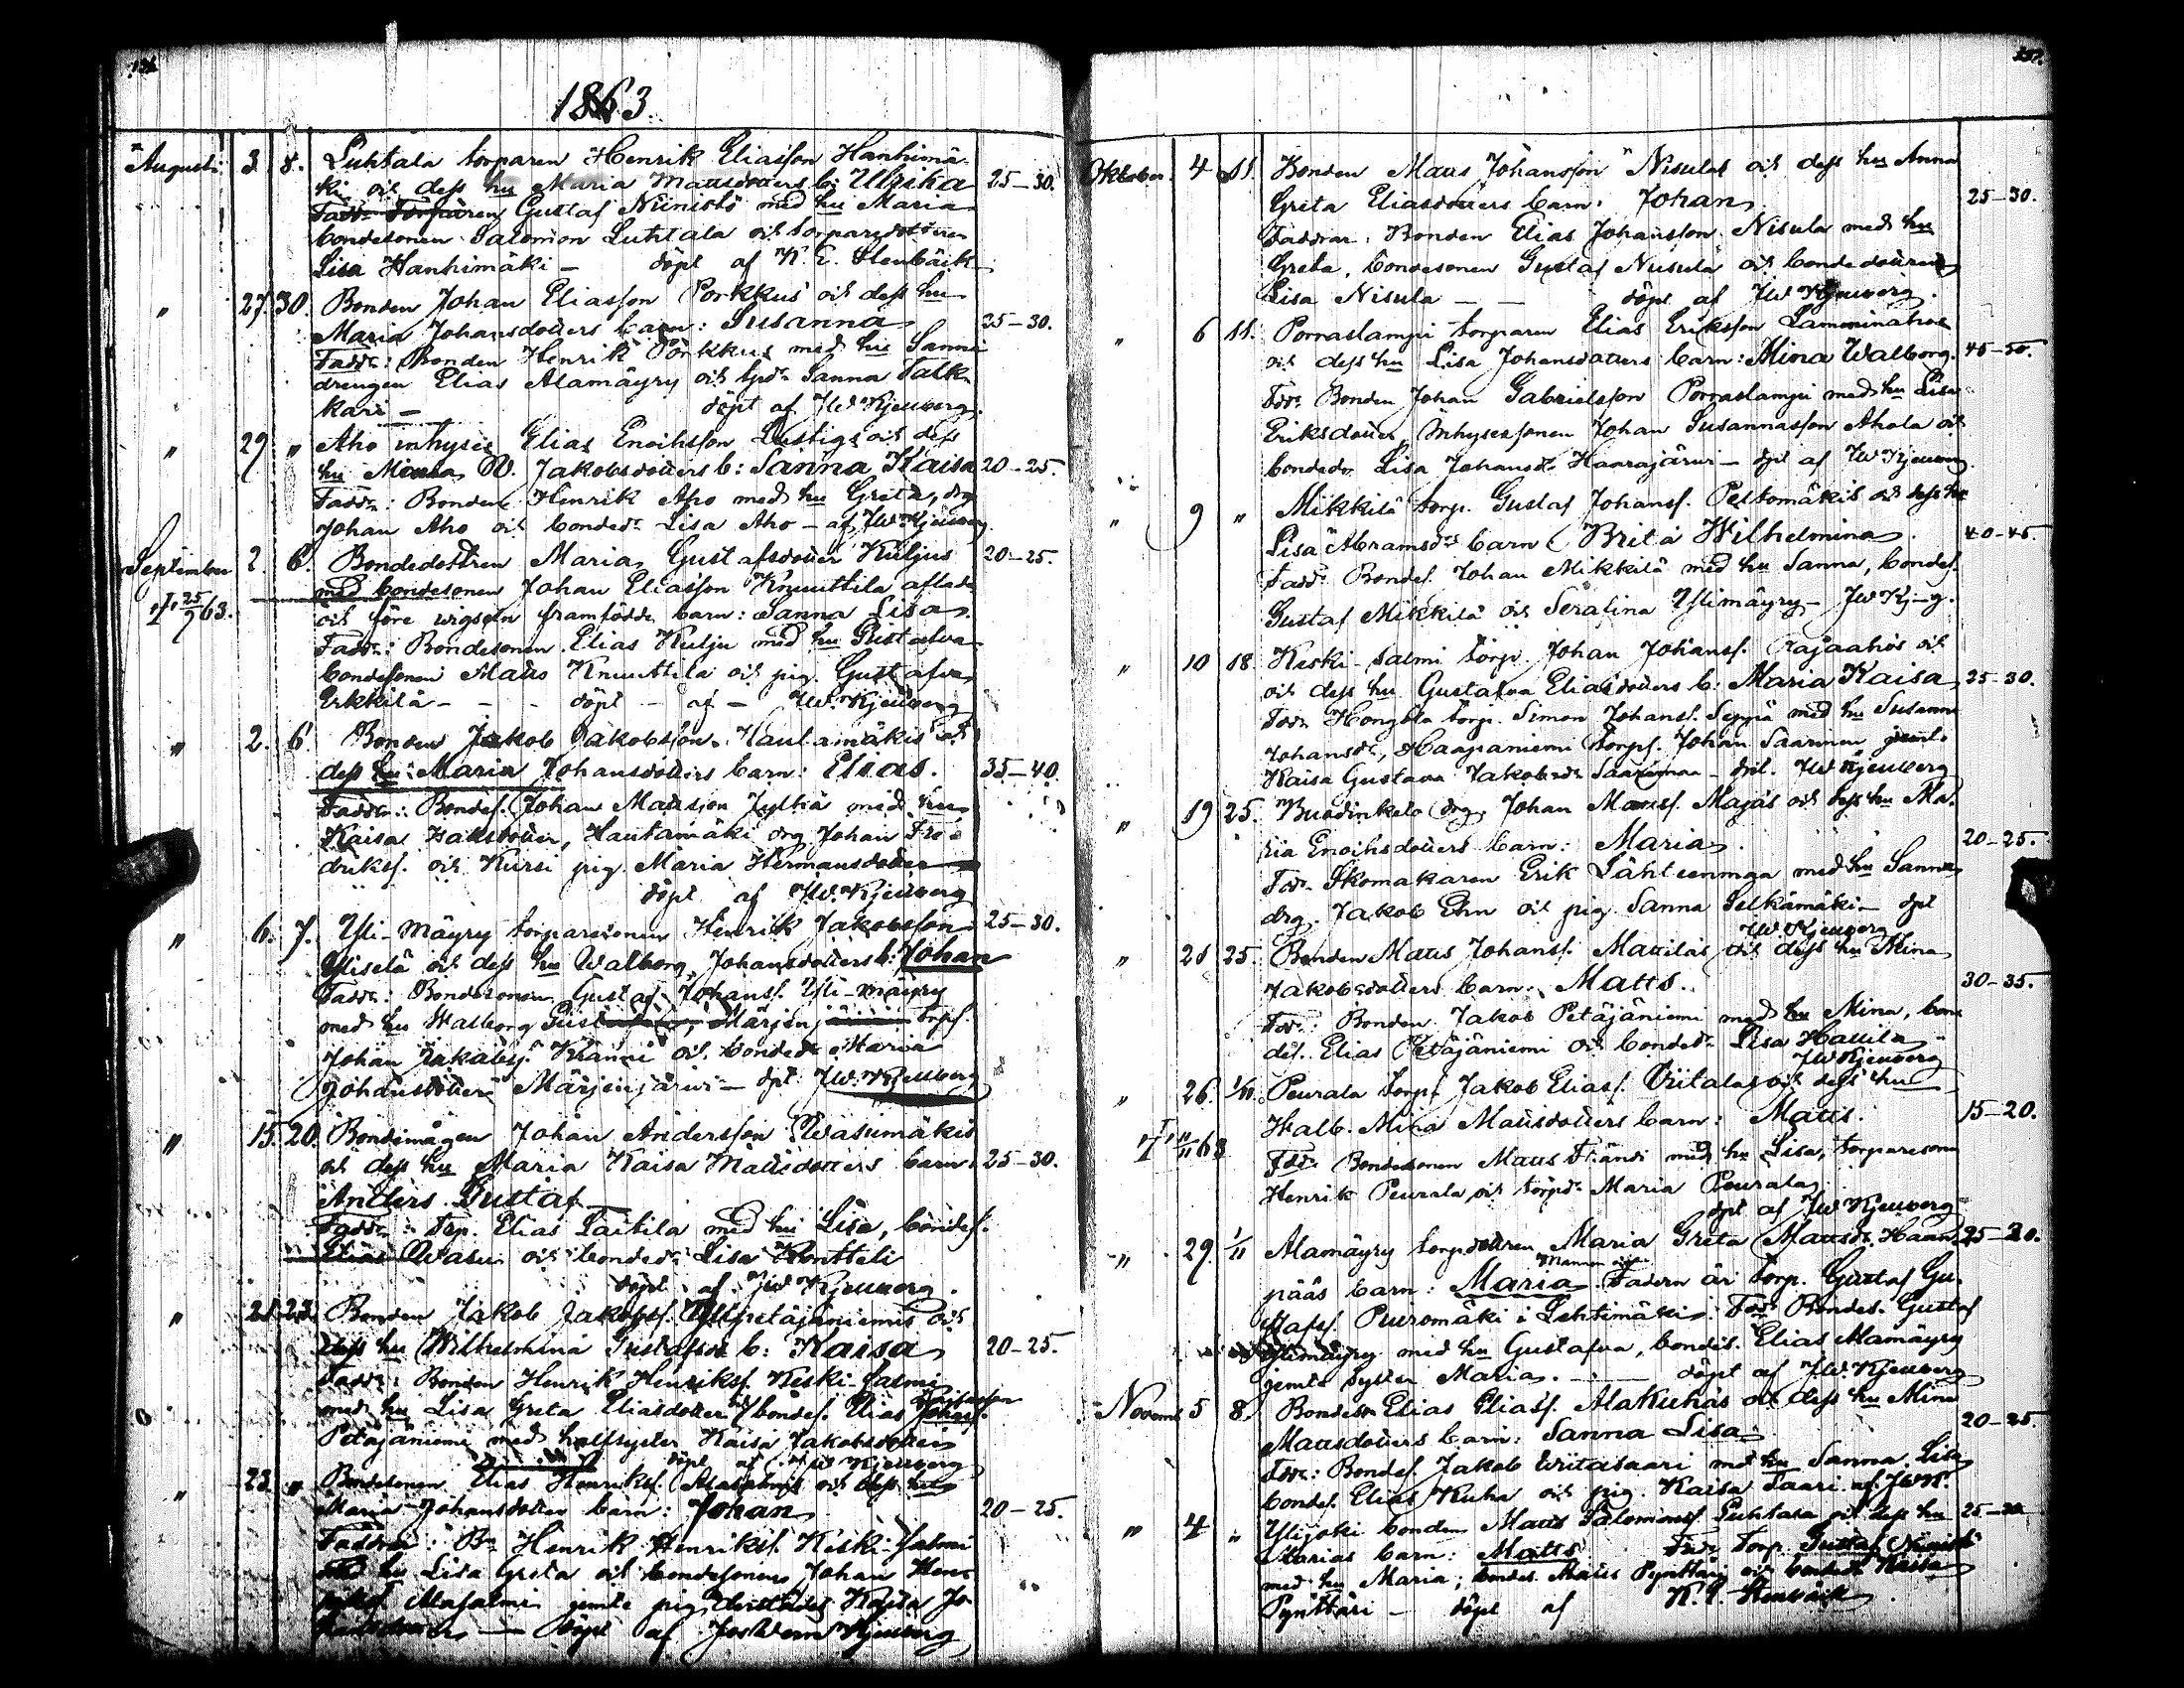 1863.
Augusti 3. 8. Luhtala torparen Henrik Eliasson Hanhimä-
ki och dess hu Maria Mattsdotters b: Ulrika 25–30.
Faddr. Torparen Gustaf Niinistö med hu Maria
bondesonen Salomon Luhtala och torparedottren
Lisa Hanhimäki – döpt af K. E. Stenbäck
" 27. 30. Bonden Johan Eliasson Porkkus och dess hu
Maria Johansdotters barn: Susanna 25–30.
Faddr: Bonden Henrik Porkkus med hu Sanna
drengen Elias Alamäyry och Sanna Talk-
kari – döpt af JW Kjeuverg.
" 29 " Aho inhyses Elias Enoihsson Lustigs och dess
hu Jakobsdotters b: Sanna Kaisa 20–25.
Faddr: Bonden Henrik Aho med hu Greta, drg
Johan Aho och bondedr Lisa Aho – af JW Kjeuverg
September 2. 6. Bondedottren Maria Gustafsdotter Kuljus 20–25.
med bondesonen Johan Eliasson Knuuttila aflade
25/9 63. och före wigseln framfödde barn: Sanna Lisa
Faddr: Bondesonen Elias Kulju med hu Gustafva
bondesonen Matts Knuuttila och pig. Gustafva
Erkkilä – – döpt – af – JW Kjeuverg
" 2. 6. Bonden Jakob Jakobsson Hautamäkis och
dess hu Maria Johansdotters barn: Elias. 35–40.
Faddr: Bondes. Johan Mattsson Jylhä med hu
Kaisa Hautamäki drg Johan Fre-
driksf. och Kursi pig. Maria Hermansdotter
döpt af JW. Kjeuverg
" 6. 7. Yli-Mäyry torparesonen Henrik Jakobsson 25–30.
och dess hu Walborg Johansdotters b: Johan
Faddr: Bondesonen Gustaf Johansf. Yli-mäyry
med hu Walborg Märjen torpf.
Johan och bondedr Maria
Johansdotter Märjenjärwi – dpt JW. Kjeuverg
" 15. 20. Bondemågen Johan Andersson Wasumäkis
och dess hu Maria Kaisa Mattsdotters barn: 25–30.
Anders Gustaf
Faddr: Torp. Elias med hu Lisa, bondes.
Elias Wasu och bondedr Lisa Kontteli
döpt af JW Kjeuverg.
" Bonden Jakob Jakobsf. Ylipetäjäniemis och
dess hu Wilhelmina Gustafsdr b: Kaisa 20–25.
Faddr: Bonden Henrik Henriksf. Keski-Salmi
med hu Lisa Greta Eliasdotter, bondes. Elias
Petäjäniemi med halfsyster Kaisa Jakobsdotter
döpt af JW Kjeuverg
" 23. " Bondesonen Elias Henriksf. och dess hu
Maria Johansdotter barn: Johan 20–25.
Faddrar: Bn Henrik Henriksf. Keski-Salmi
med hu Lisa Greta och bondesonen Johan Hen-
Alasalmi jemte pig. Kajsa Jo-
hansdotter – döpt af Kjeuverg
Oktober 4 11. Bonden Matts Johansson Nisulas och dess hu Anna
Greta Eliasdotters barn: Johan 25–30.
Faddrar: Bonden Elias Johansson Nisula med hu
Greta, bondesonen Gustaf Nisula och bondedottren
Lisa Nisula – – döpt af JW Kjeuverg.
" 6 11. Porraslampi torparen Elias Eriksson Lamminahos
och dess hu Lisa Johansdotters barn: Mina Walborg. 45–50.
Fdr: Bonden Johan Gabrielsson Porraslampi med hu Lisa
Eriksdotter, Inhysessonen Johan Susannasson Ahola och
bondedr Lisa Johansdr Haarajärwi – dpt af JW Kjeuverg
" 9 " Mikkilä torp. Gustaf Johansf. Peltomäkis och dess hu
Lisa Abramsdrs barn Brita Wilhelmina. 40–45.
Faddr: Bondes. Johan Mikkilä med hu Sanna, bondes.
Gustaf Mikkilä och Serafina Ylimäyry – JW Kj–g.
" 10 18. Keski-Salmi torp. Johan Johansf. Rajaahos och
och dess hu Gustafva Eliasdotters b: Maria Kaisa 25–30.
Fdr: Hongola torp. Simon Johansf. Seppä med hu Susanna
Johansdr, Haapaniemi torpf. Johan Saarinen jemte
Kaisa Gustava Jakobsdr – dpt. JW Kjeuverg
" 19 25. drg. Johan Mattsf. Majas och dess hu Ma-
ria Enoihsdotters barn: Maria. 20–25.
Fdr. Skomakaren Erik Lähteenmaa med hu Sanna,
drg. Jakob Ehn och pig. Sanna Selkämäki – dpt
JW Kjeuverg
" 21 25. Bonden Matts Johansf. Mattilas och dess hu Mina
Jakobsdotters barn: Matts. 30–35.
Fdr: Bonden Jakob Petäjäniemi med hu Mina, bon-
des. Elias Petäjäniemi och bondedr Lisa
JW Kjeuverg
" 26. 1/11. Peurala torp. Jakob Eliasf. Viitalas och dess hu
Walb. Mina Mattsdotters barn: Matts. 15–20.
11/11 63 Fdr. Bondesonen Matts Frändi med hu Lisa, torparesonen
Henrik Peurala och torpdr Maria Peurala
dpt af JW Kjeuverg
" 29. 1/11 Alamäyry torpdottren Maria Greta Mattsdr Haan-
pääs barn: Maria. Fadern är torp. Gustaf Gu-
stafsf. Puiromäki i Lehtimäki. Fdr Bondes. Gustaf
Ylimäyry med hu Gustafva, bondes. Elias Alamäyry
jemte syster Maria. – döpt af JW. Kjeuverg
Novemb 5 8. Bondeson Elias Eliasf. Alakuhas och dess hu Mina
Mattsdotters barn: Sanna Lisa 20–25.
Fdr: Bondes. Jakob Wiitasaari med hu Sanna Lisa
bondes. Elias Kuha och pig. Kaisa Saari. af JWK.
" 4 " Ylijoki bonden Matts Salomonsf. Luhtala och dess hu
Marias barn: Matts Fdr Torp. Gustaf Niinistö
med hu Maria, bondes. Matts Pynttäri och bondedr Kaisa
Pynttäri – döpt af K. E. Stenbäck